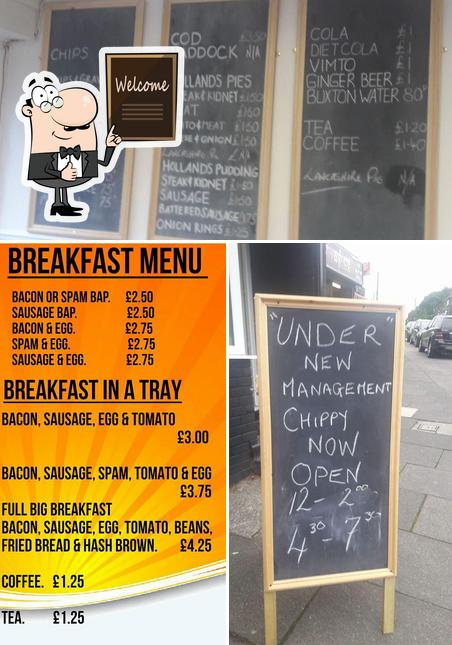 CHIPS
Welcome
COD £3.50
HADDOCK N/A
HOLLANDS PIES
STEAK & KIDNEY £1.50
MEAT £1.50
POTATO & MEAT £1.50
CHEESE & ONION £1.50
LANCASHIRE PIE £ N/A
HOLLANDS PUDDING
STEAK & KIDNEY £1.50
SAUSAGE
BATTERED SAUSAGE
ONION RINGS
COLA £1
DIET COLA £1
VIMTO £1
GINGER BEER £1
BUXTON WATER 80P
TEA £1-20
COFFEE £1-40
LANCASHIRE PIE N/A
BREAKFAST MENU
BACON OR SPAM BAP. £2.50
SAUSAGE BAP. £2.50
BACON & EGG. £2.75
SPAM & EGG. £2.75
SAUSAGE & EGG. £2.75
BREAKFAST IN A TRAY
BACON, SAUSAGE, EGG & TOMATO
£3.00
BACON, SAUSAGE, SPAM, TOMATO & EGG
£3.75
FULL BIG BREAKFAST
BACON, SAUSAGE, EGG, TOMATO, BEANS,
FRIED BREAD & HASH BROWN. £4.25
COFFEE. £1.25
TEA. £1.25
"UNDER"
NEW
MANAGEMENT
CHIPPY
NOW
OPEN
12 - 2 00
4 30 - 7 30